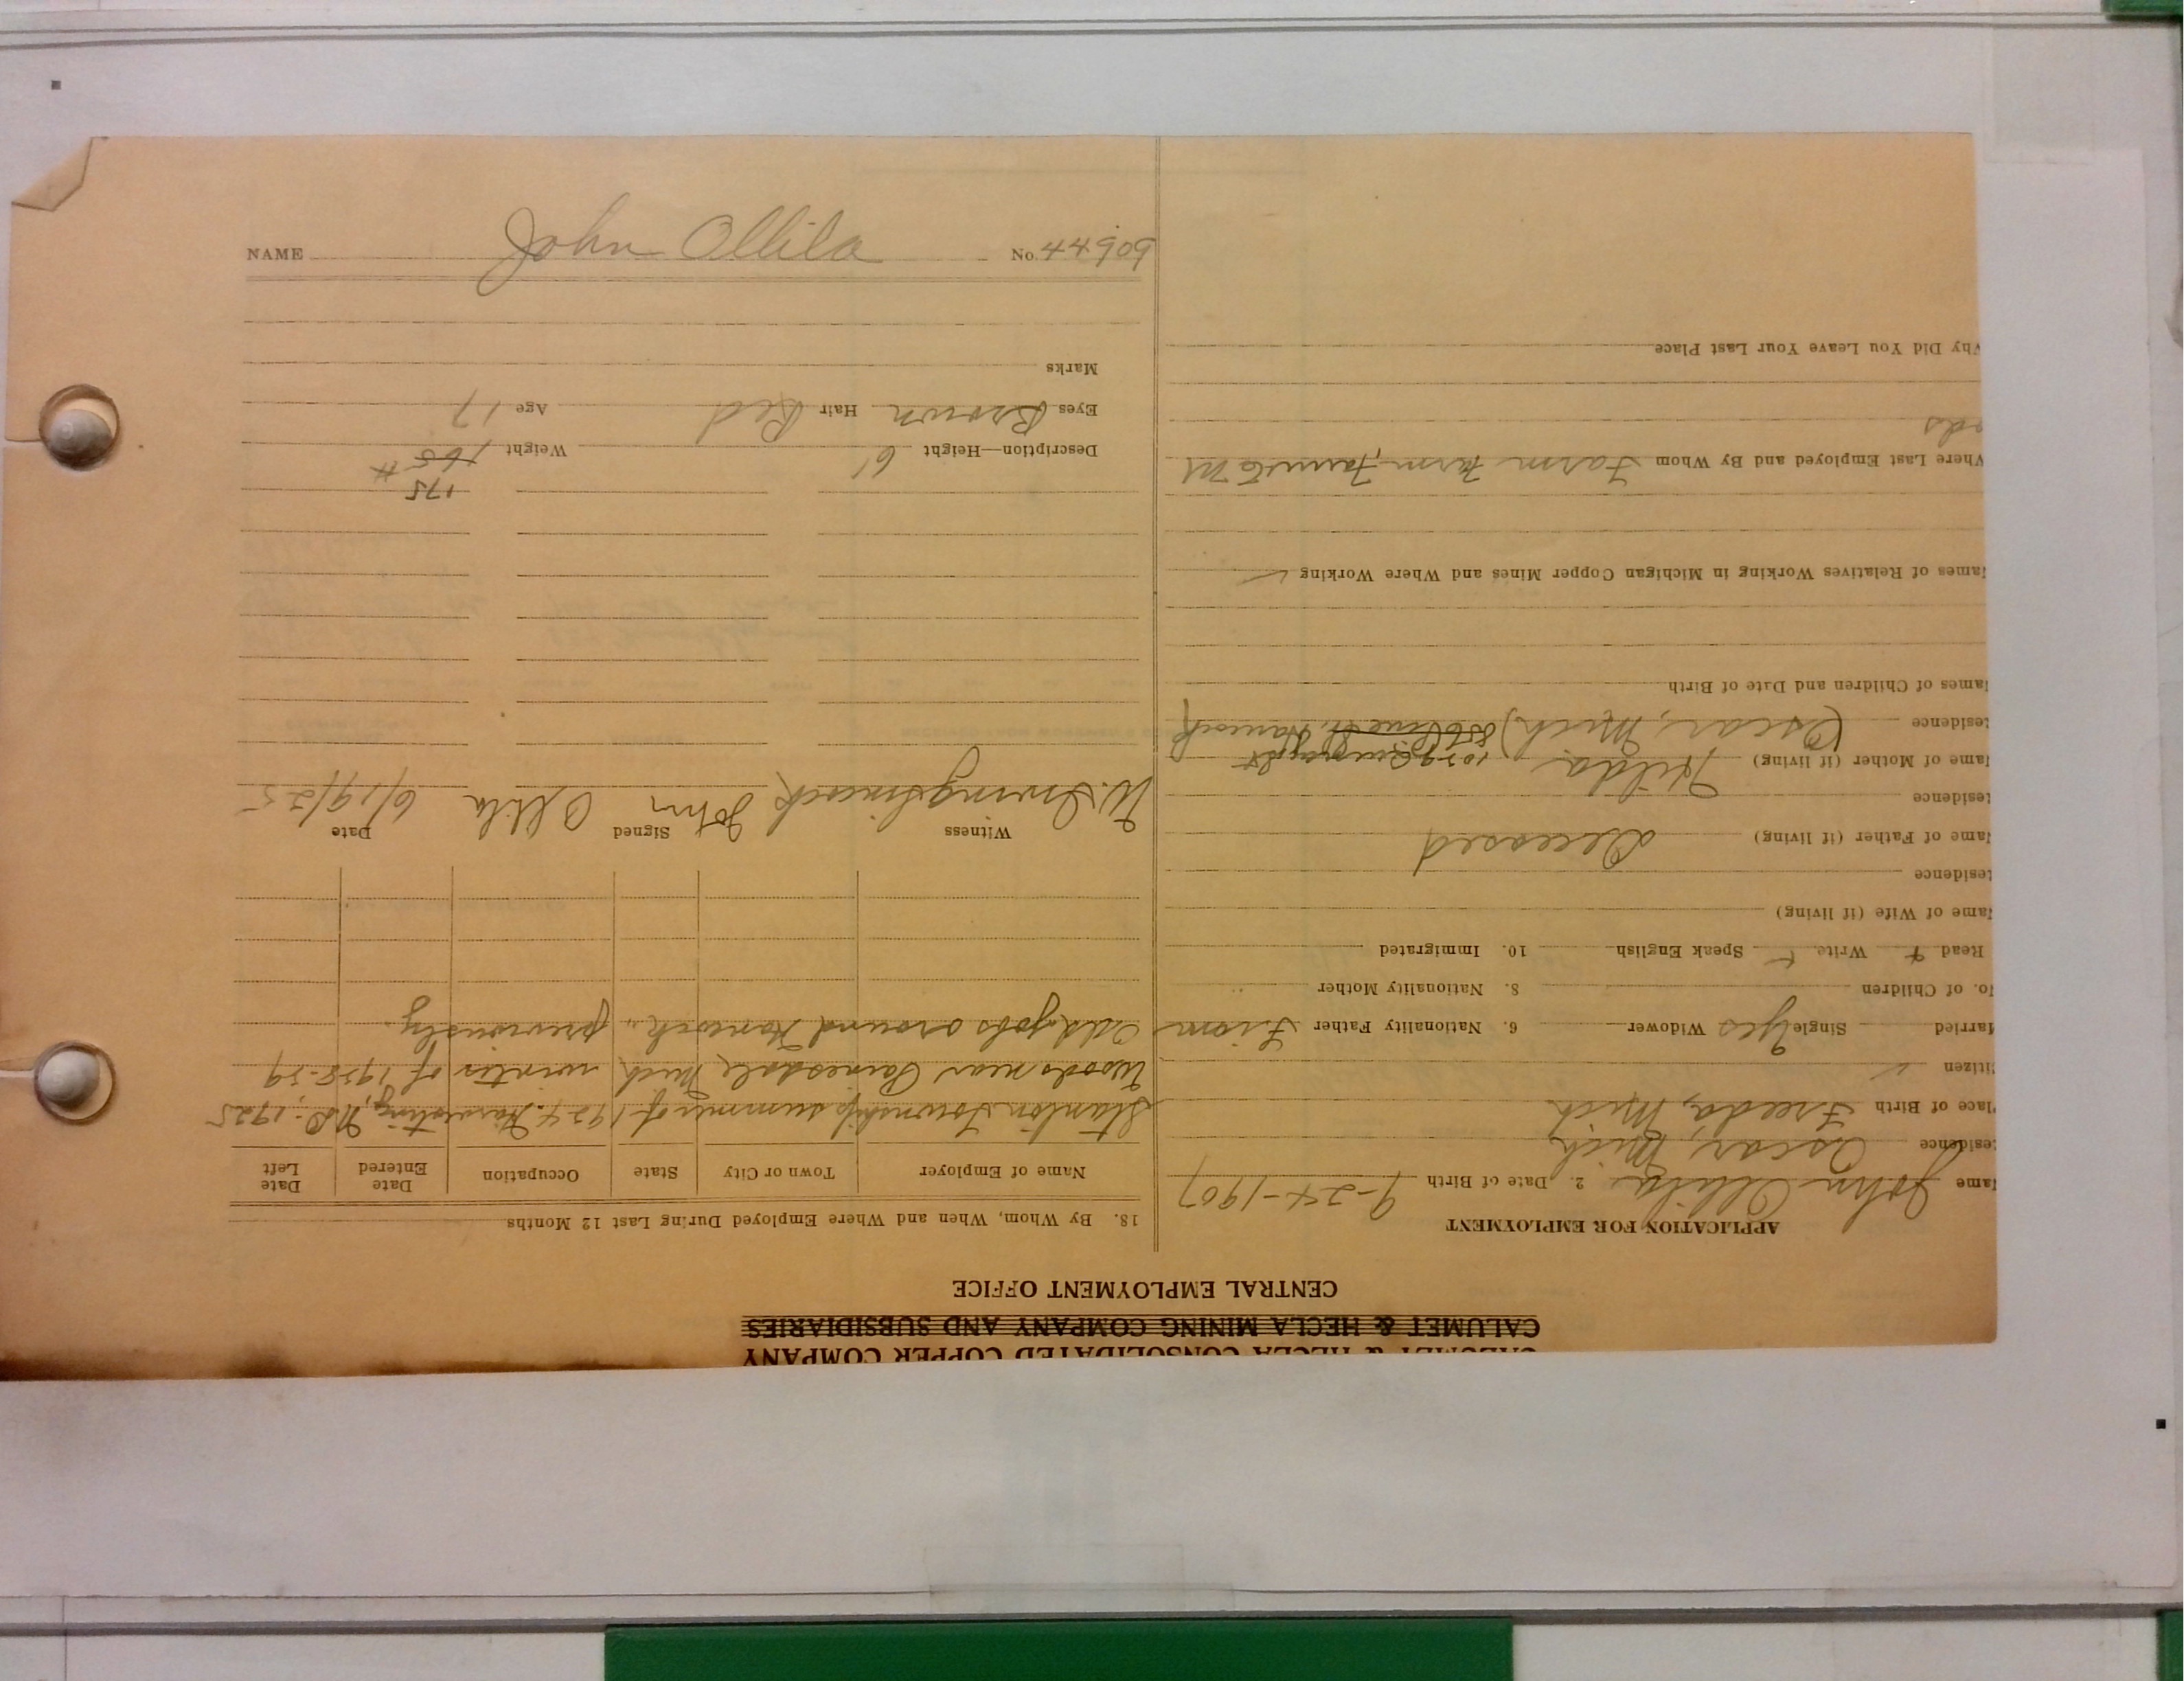 CALUMET & HECLA CONSOLIDATED COPPER COMPANY
CALUMET & HECLA MINING COMPANY AND SUBSIDIARIES
CENTRAL EMPLOYMENT OFFICE
APPLICATION FOR EMPLOYMENT
ame John Ollila 2. Date of Birth 9-24-1907
esidence Oscar, Mich
lace of Birth Freeda, Mich
itizen ✓
arried Single Yes Widower 6. Nationality Father
o. of Children 8. Nationality Mother "
Read Write. ✓ Speak English 10. Immigrated
ame of Wife (if living)
esidence
ame of Father (if living) Deceased
esidence
ame of Mother (if living) Hilda
esidence (Oscar, Mich) 856 Hancock
ames of Children and Date of Birth
ames of Relatives Working in Michigan Copper Mines and Where Working ✓
here Last Employed and By Whom Farm
ds
hy Did You Leave Your Last Place
18. By Whom, When and Where Employed During Last 12 Months
Name of Employer Town or City State Occupation Date Entered Date Left
Stanton Township summer of 1924. Harvesting, N.D., 1925
Woods near Painesdale, Mich winter of 1958-59
Odd jobs around Hancock " previously.
Witness Signed Date
W. John Ollila 6/19/25
175
Description—Height 6' Weight 165 #
Eyes Brown Hair Red Age 17
Marks
NAME John Ollila No. 44909